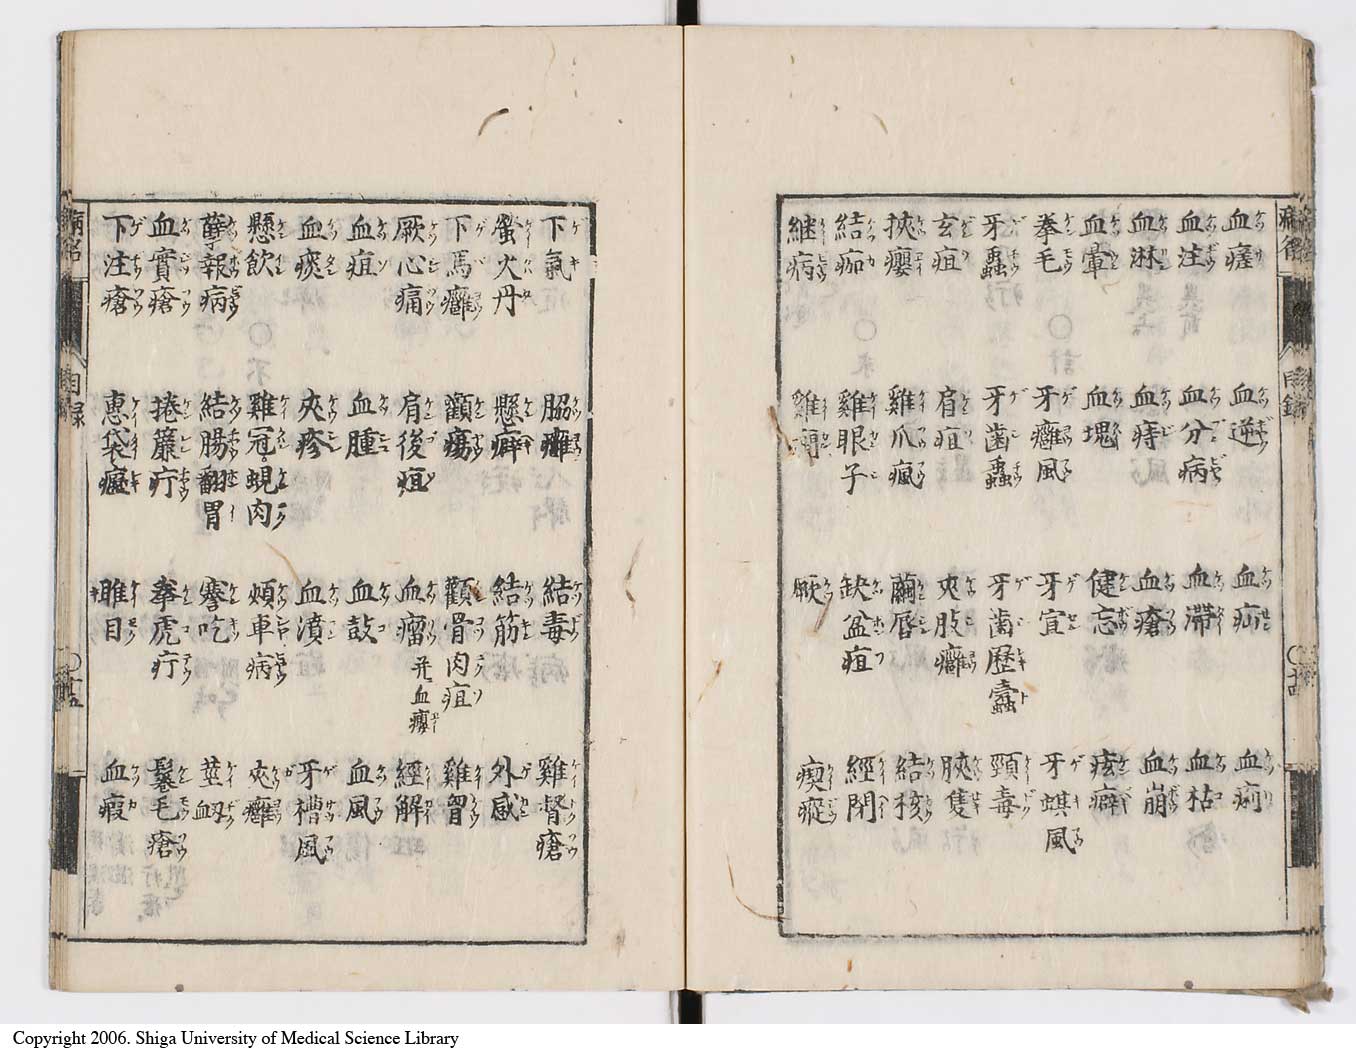 血瘥 血逆 血疝 血痢
血注 血分病 血滯 血枯
血淋 血痔 血瘡 血崩
血暈 血塊 健忘 痃癖
拳毛 牙癰風 牙宣 牙蜞風
牙蟲 牙齒蟲 牙齒歷蠹 頸毒
玄疽 肩疽 夾肢癰
挾癭 雞爪瘋 繭唇 結核
結痂 雞眼子 缺盆疽 經閉
継病 瘈瘲
目録
下氣 脇癰 結毒 雞督瘡
蚤火丹 懸癖 結筋 外感
下馬癰 顴瘍 顴骨肉疽 雞胷
厥心痛 肩後疽 血瘤 并血癭 經解
血疽 血腫 血鼓 血風
血痰 夾疹 血漬 牙槽風
懸飲 雞冠蜆肉 頰車病 夾癰
孽報病 結腸翻胃 謇吃 莖衂
血實瘡 捲簾疔 拳虎疔 鬈毛瘡
下注瘡 惠袋 睢目 血瘕
病名
目録
〇十五
Copyright 2006. Shiga University of Medical Science Library